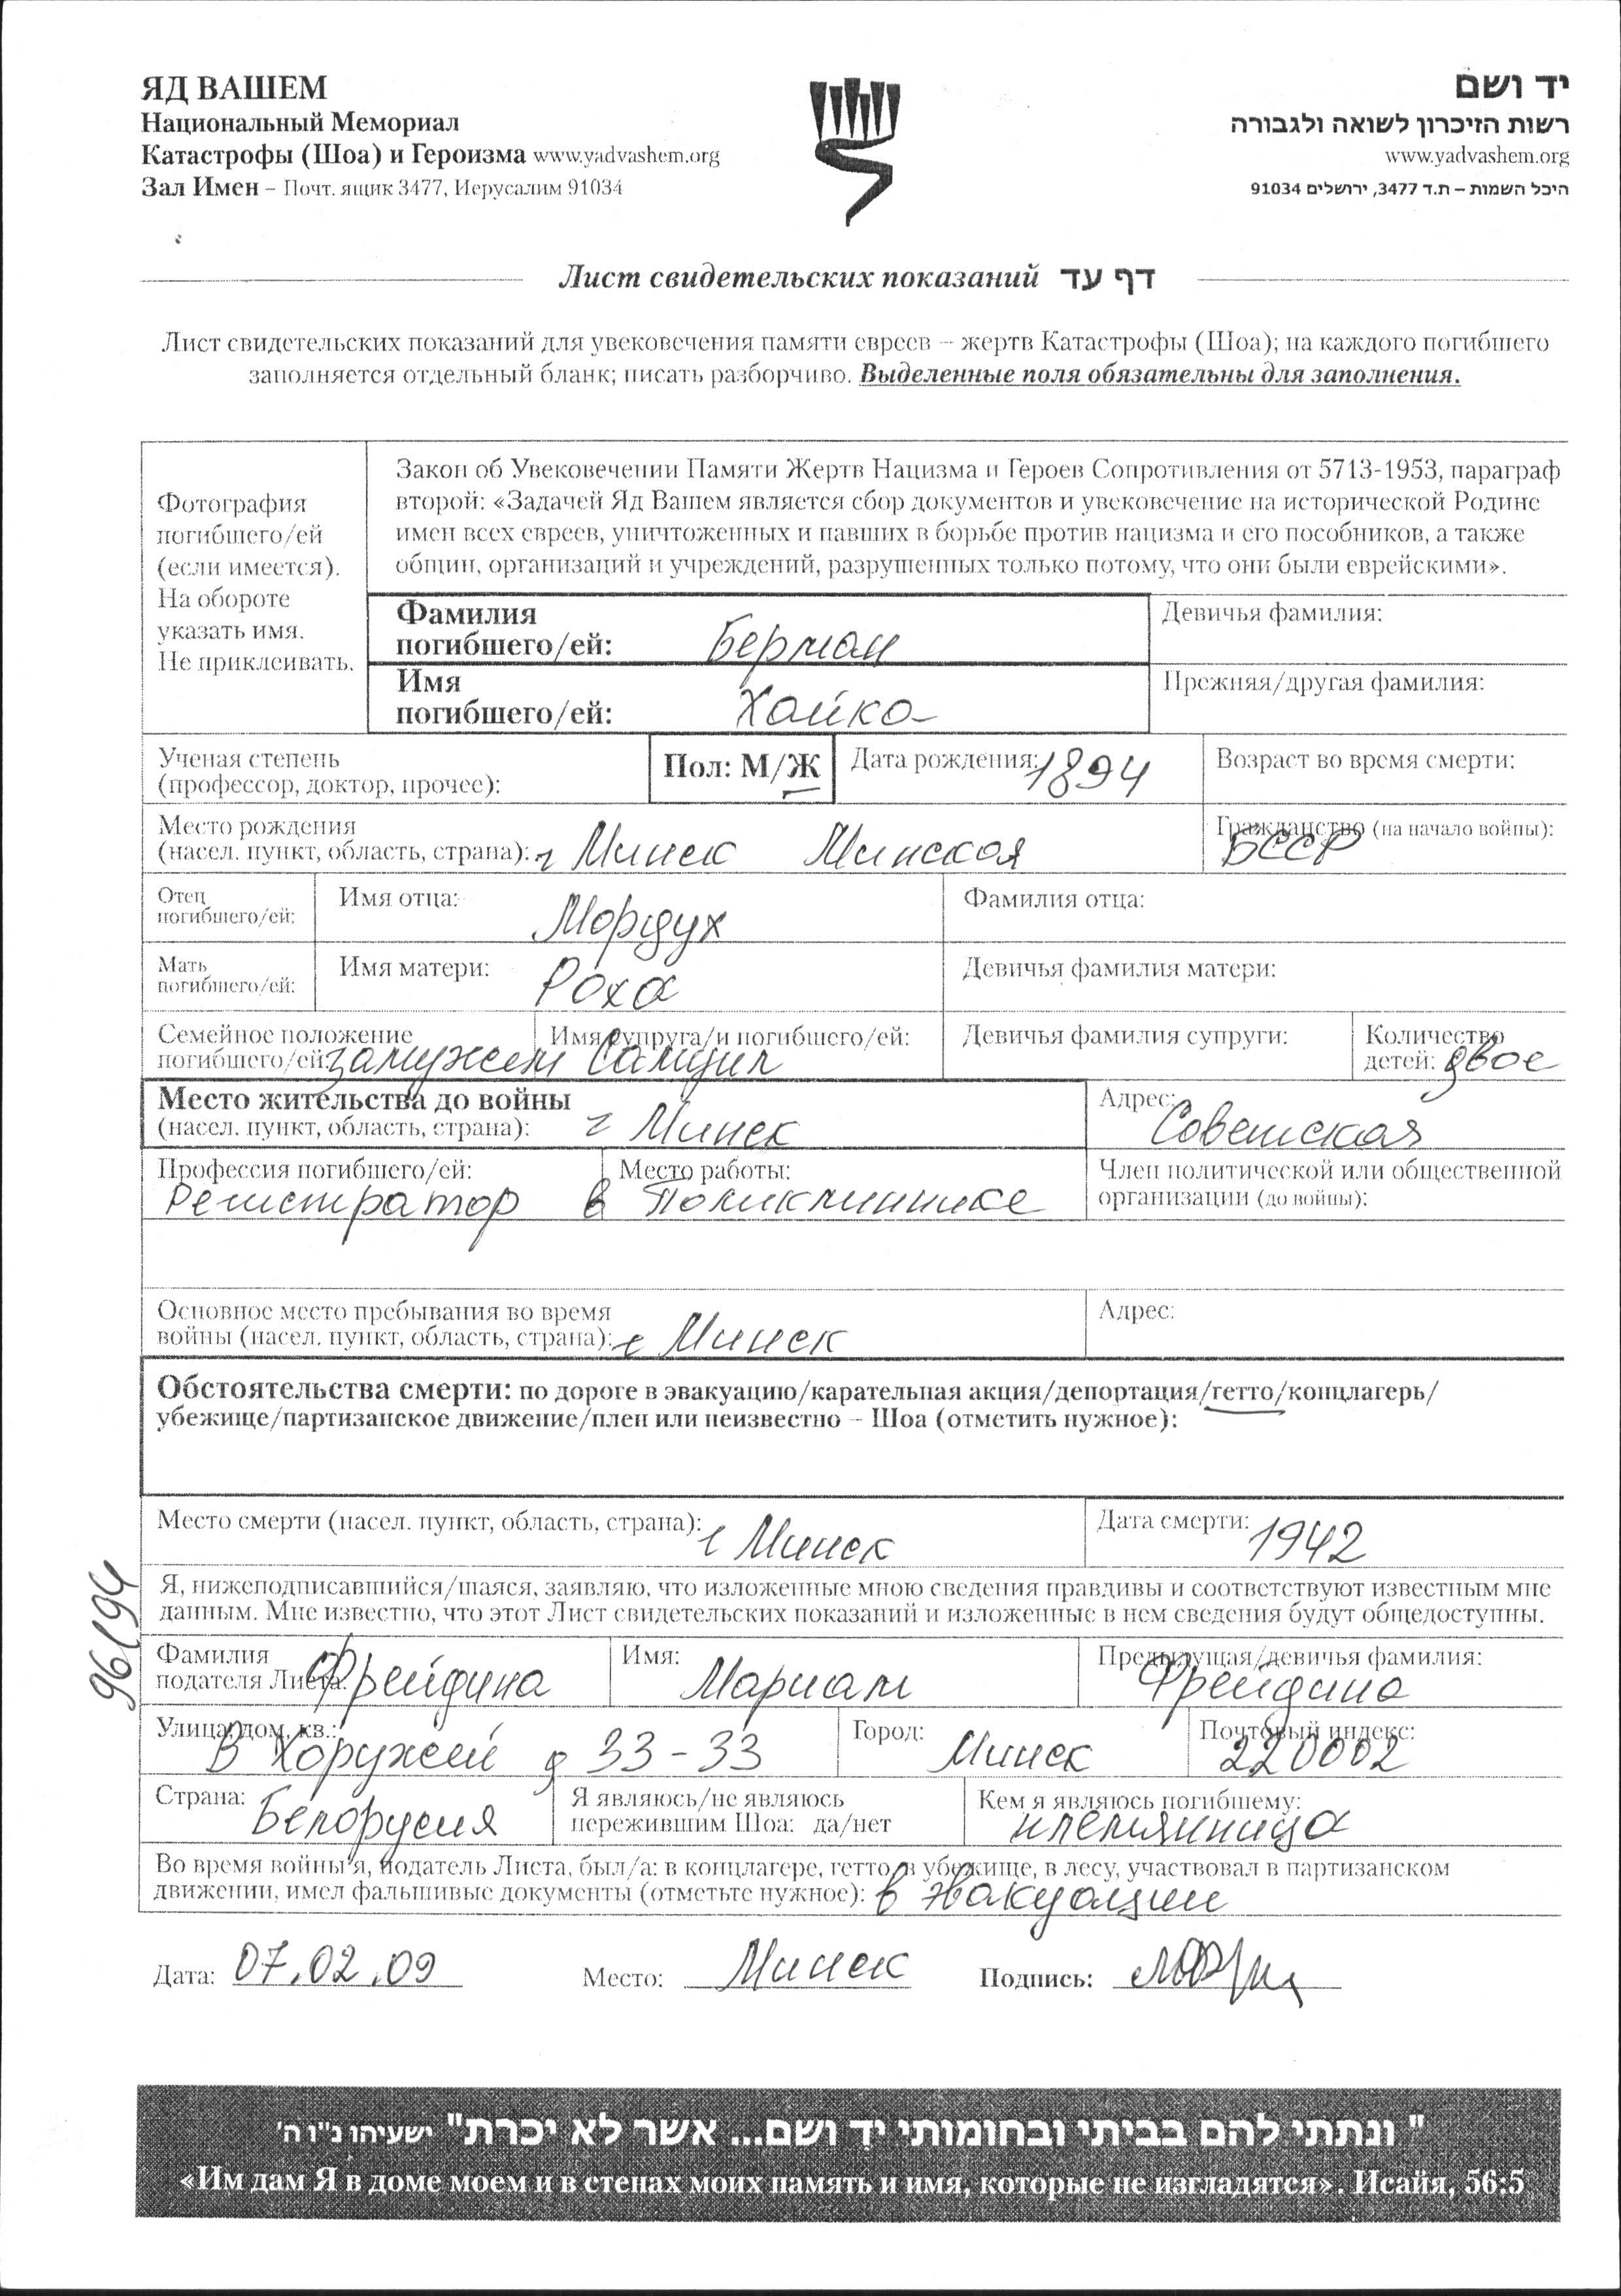 ЯД ВАШЕМ
Национальный Мемориал
Катастрофы (Шоа) и Героизма www.yadvashem.org
Зал Имен – Почт. ящик 3477, Иерусалим 91034
יד ושם
רשות הזיכרון לשואה ולגבורה
www.yadvashem.org
היכל השמות – ת.ד 3477, ירושלים 91034
Лист свидетельских показаний דף עד
Лист свидетельских показаний для увековечения памяти евреев – жертв Катастрофы (Шоа); на каждого погибшего
заполняется отдельный бланк; писать разборчиво. Выделенные поля обязательны для заполнения.
Фотография
погибшего/ей
(если имеется).
На обороте
указать имя.
Не приклеивать.
Закон об Увековечении Памяти Жертв Нацизма и Героев Сопротивления от 5713-1953, параграф
второй: «Задачей Яд Вашем является сбор документов и увековечение на исторической Родине
имен всех евреев, уничтоженных и павших в борьбе против нацизма и его пособников, а также
общин, организаций и учреждений, разрушенных только потому, что они были еврейскими».
Фамилия
погибшего/ей: Берман
Девичья фамилия:
Имя
погибшего/ей: Хайка
Прежняя/другая фамилия:
Ученая степень
(профессор, доктор, прочее):
Пол: М/Ж
Дата рождения: 1894
Возраст во время смерти:
Место рождения
(насел. пункт, область, страна): г Минск Минская
Гражданство (на начало войны):
БССР
Отец
погибшего/ей:
Имя отца: Мордух
Фамилия отца:
Мать
погибшего/ей:
Имя матери: Роха
Девичья фамилия матери:
Семейное положение
погибшего/ей: замужем
Имя супруга/и погибшего/ей:
Самуил
Девичья фамилия супруги:
Количество
детей: двое
Место жительства до войны
(насел. пункт, область, страна): г Минск
Адрес:
Советская
Профессия погибшего/ей:
Регистратор
Место работы:
в Поликлиннике
Член политической или общественной
организации (до войны):
Основное место пребывания во время
войны (насел. пункт, область, страна): г Минск
Адрес:
Обстоятельства смерти: по дороге в эвакуацию/карательная акция/депортация/гетто/концлагерь/
убежище/партизанское движение/плен или неизвестно – Шоа (отметить нужное):
Место смерти (насел. пункт, область, страна): г Минск
Дата смерти: 1942
Я, нижеподписавшийся/шаяся, заявляю, что изложенные мною сведения правдивы и соответствуют известным мне
данным. Мне известно, что этот Лист свидетельских показаний и изложенные в нем сведения будут общедоступны.
96194
Фамилия
подателя Листа: Фрейдина
Имя: Мариам
Предыдущая/девичья фамилия:
Фрейдина
Улица, дом, кв.:
В Хоружей д 33-33
Город: Минск
Почтовый индекс:
220002
Страна: Белорусия
Я являюсь/не являюсь
пережившим Шоа: да/нет
Кем я являюсь погибшему:
племянница
Во время войны я, податель Листа, был/а: в концлагере, гетто, в убежище, в лесу, участвовал в партизанском
движении, имел фальшивые документы (отметьте нужное): в эвакуации
Дата: 07.02.09 Место: Минск Подпись:
" ונתתי להם בביתי ובחומותי יד ושם... אשר לא יכרת" ישעיהו נ"ו ה'
«Им дам Я в доме моем и в стенах моих память и имя, которые не изгладятся». Исайя, 56:5